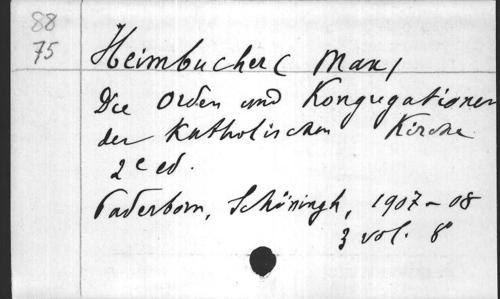 88
75
Heimbucher (Max)
Die Orden und Kongregationen
der Katholischen Kirche
2e ed.
Paderborn, Schöningh, 1907-08
3 vol. 8°